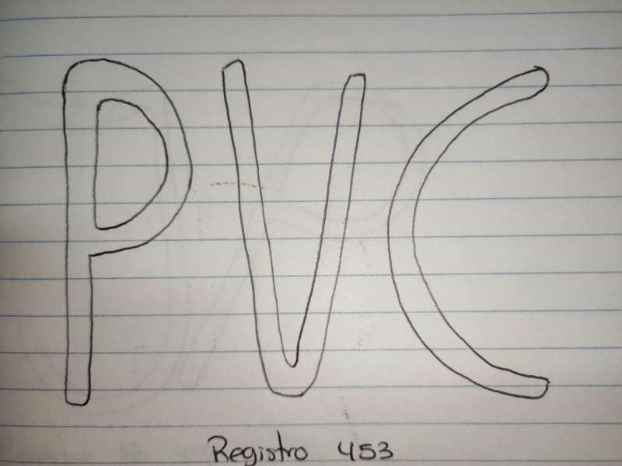 PVC
Registro 453